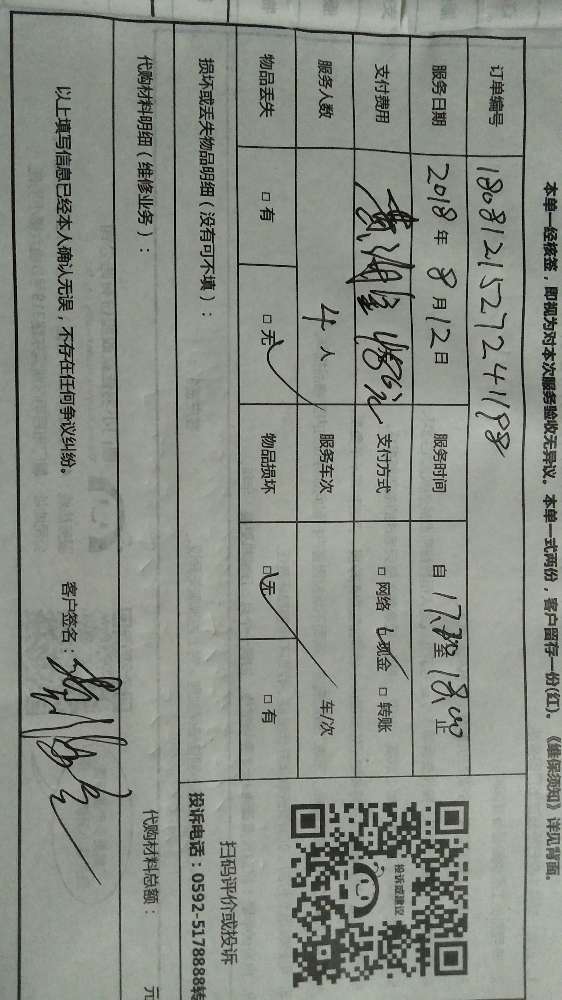 本单一经核签，即视为对本次服务验收无异议。本单一式两份，客户留存一份(红)。《维保须知》详见背面。
订单编号 180812152724198
服务日期 2018年8月12日 服务时间 自17:30至18:00止
支付费用 支付方式 □网络 □现金 □转账
服务人数 4人 服务车次 车/次
物品丢失 □有 □无 物品损坏 □无 □有
损坏或丢失物品明细（没有可不填）：
投诉或建议
扫码评价或投诉
投诉电话：0592-5178888转
代购材料明细（维修业务）： 代购材料总额： 元
以上填写信息已经本人确认无误，不存在任何争议纠纷。 客户签名：